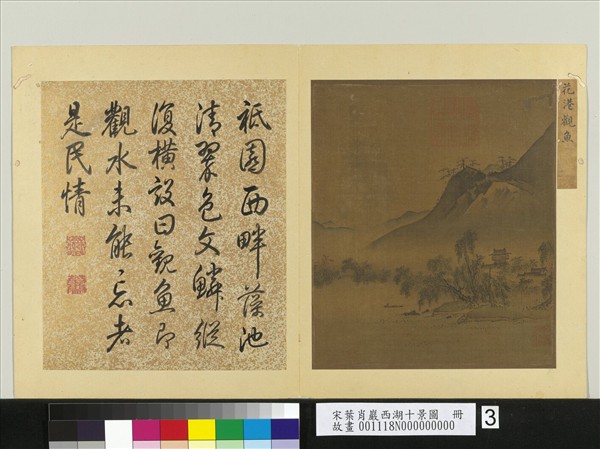 祇園西畔藻池
清翠色文鱗縱
復橫設曰觀魚即
觀水未能忘者
是民情
花港觀魚
宋葉肖巖西湖十景圖 冊
故畫001118N000000000
3